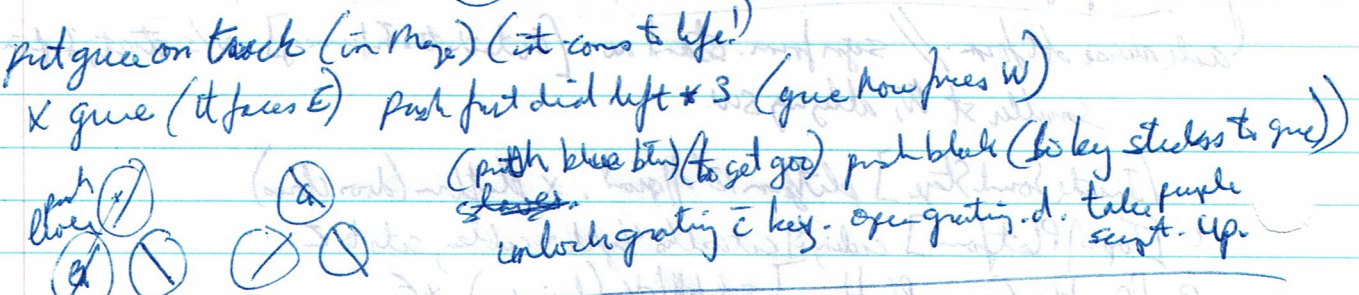 put grue on track (in Maze) (it comes to life!)
x grue (It faces E) push first dial left * 3 (grue now faces W)
(push blue btn) (to get goo) push black (so key sticks to grue))
push
lever
unlock grating c̄ key. open grating. d. take purple
script. up.